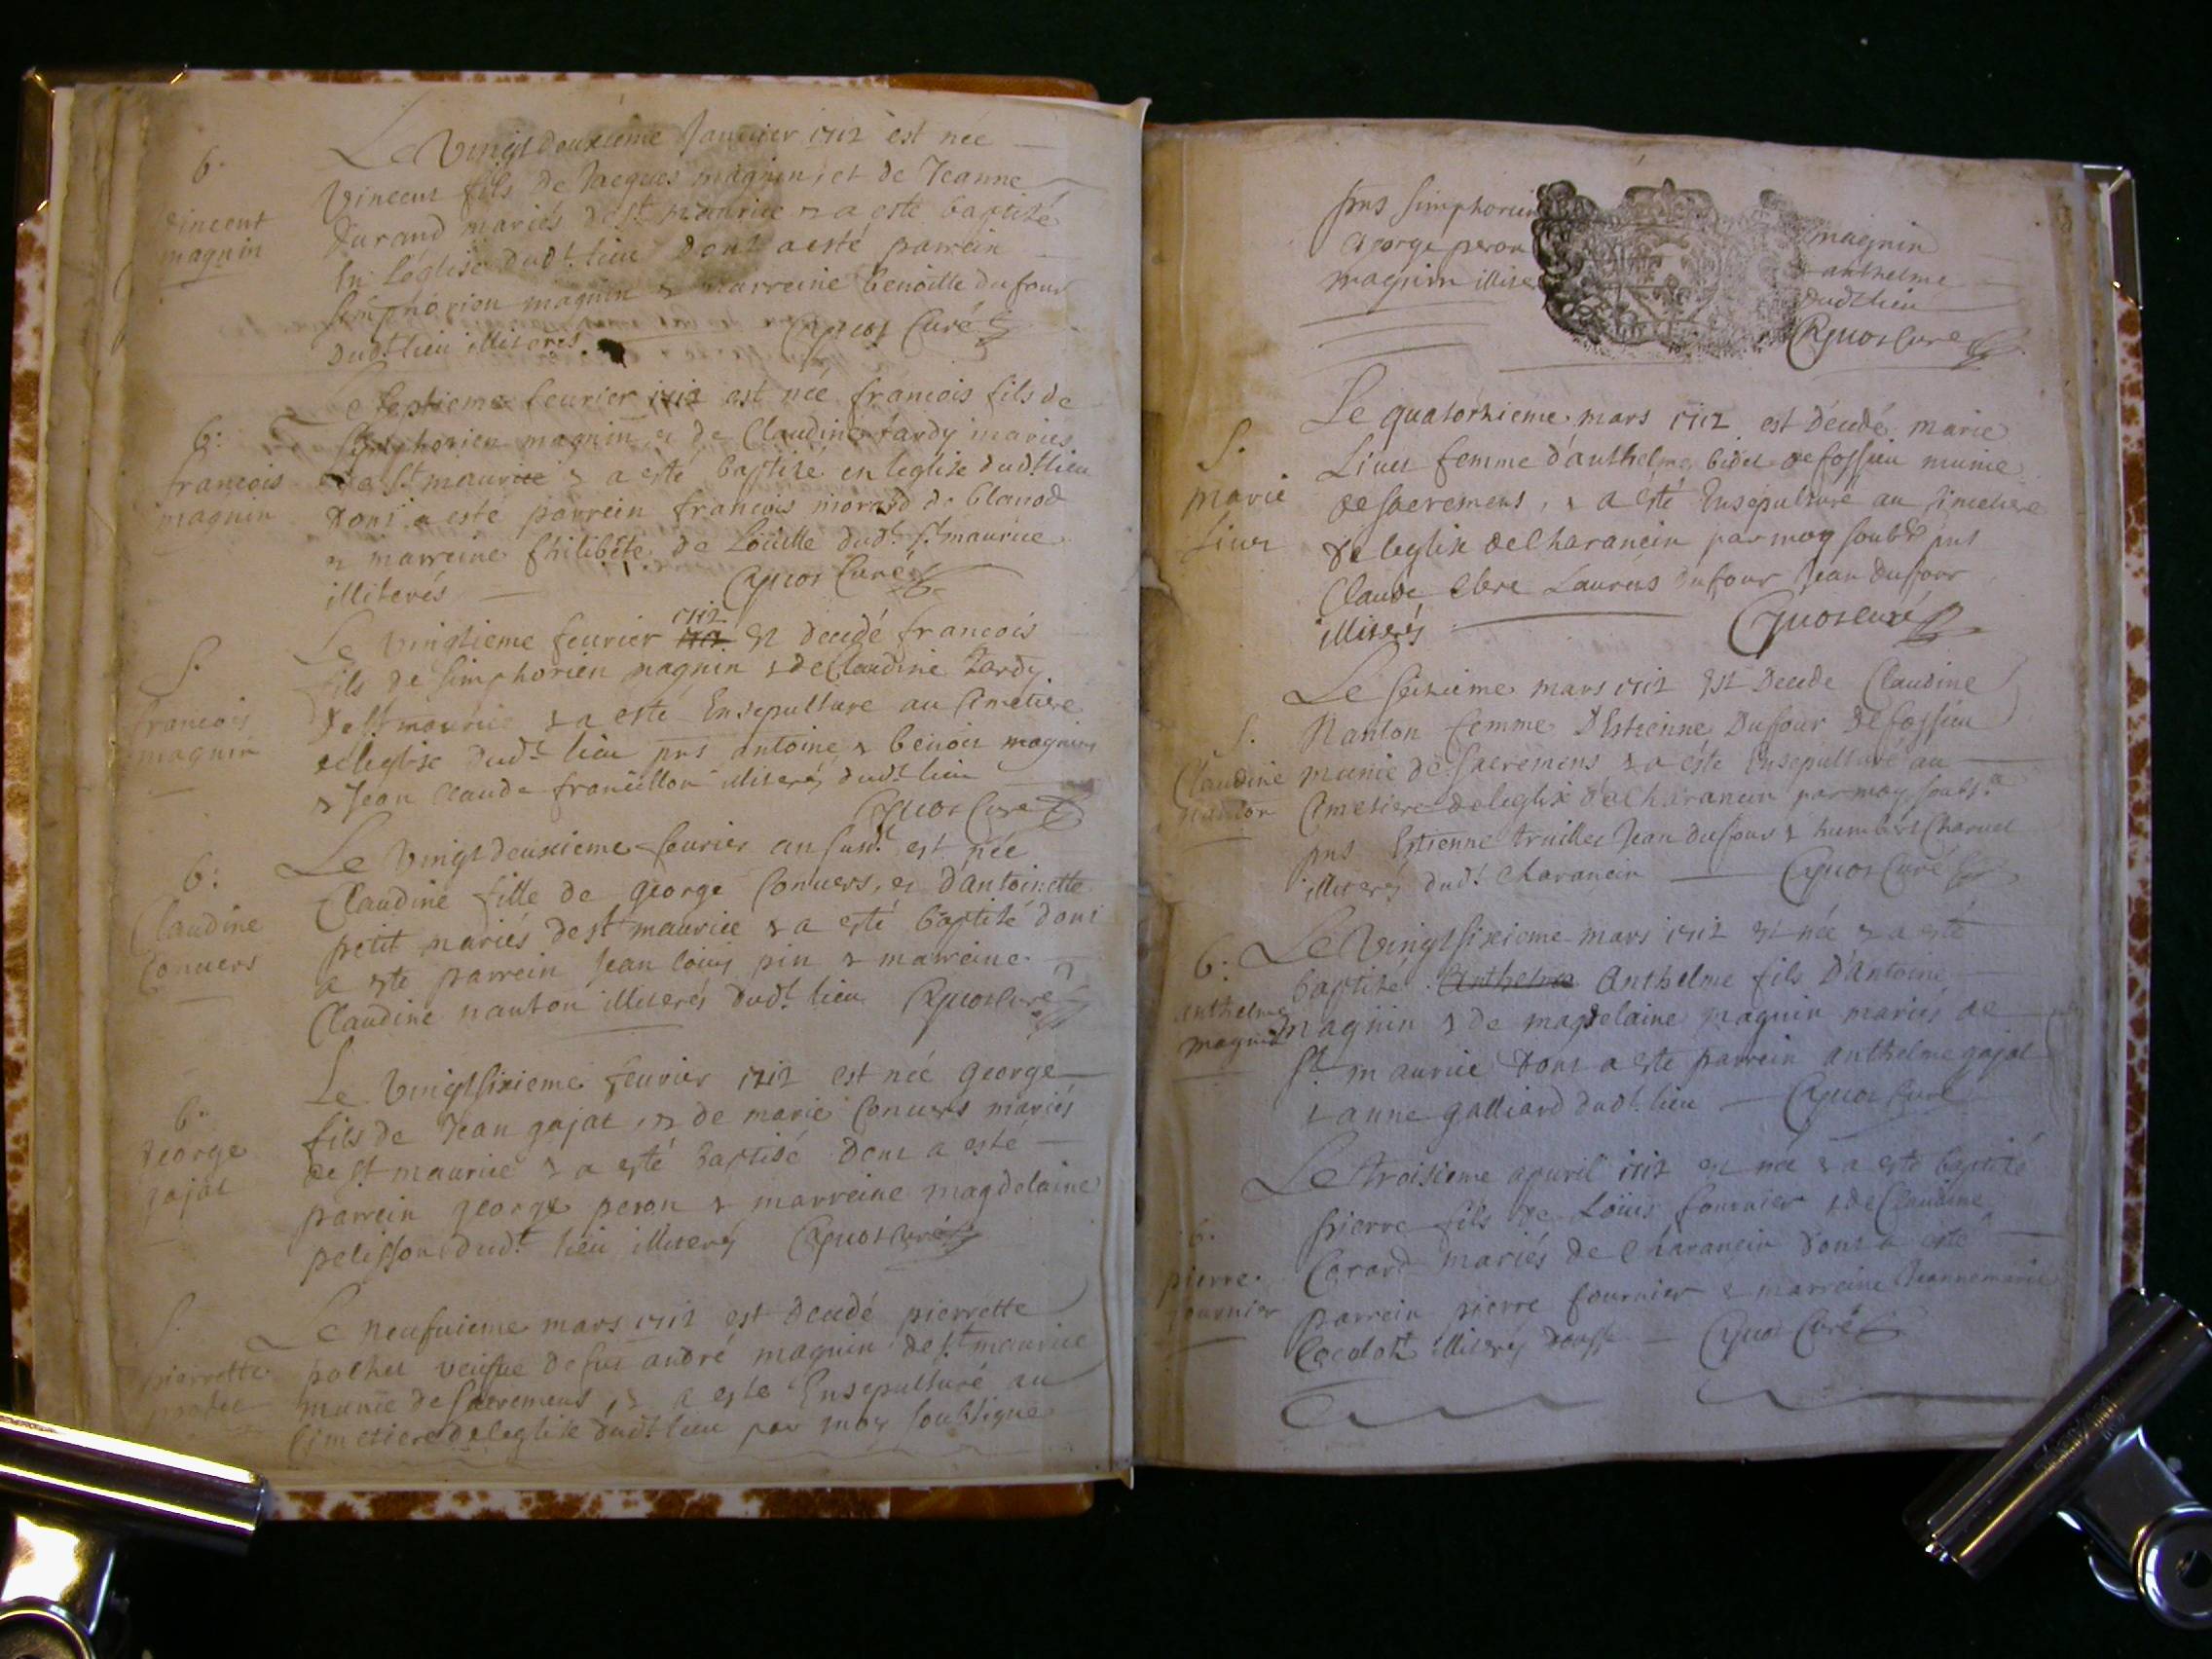 b.
vincent
magnin
Le vingt deuxieme Janvier 1712 est née
vincent fils de Jacques magnin, et de Jeanne
durand mariés de St maurice & a esté baptisé
En l'église dudt. lieu dont a esté parrein
simphorien magnin & marreine benoitte dufour
dudt lieu illiterés. Curé
b:
francois
magnin
Le septieme feurier 1712 est née francois fils de
simphorien magnin & de Claudine tardy mariés
de St maurice & a esté baptisé en leglise dudt lieu
dont a esté parrein francois morard de
& marreine philibête de dudt. St. maurice
illiterés Curé
S.
francois
magnin
Le vingtieme feurier 1712 est decedé francois
fils de simphorien magnin & de Claudine tardy
de St maurice & a esté Ensepulture au Cimetiere
de leglise dudt. lieu pns antoine & benoit magnin
& Jean Claude francillon illiterés dudt lieu
Curé
b:
Claudine
Conuers
Le vingt deuxieme feurier an susdt. est née
Claudine fille de george Conuers, et d'antoinette
petit mariés de st maurice & a esté baptisé dont
a este parrein Jean louis pin & marreine
Claudine nanton illiterés dudt. lieu Curé
b.
george
gajat
Le vingt sixieme feurier 1712 est née george
fils de Jean gajat, & de marie Conuers mariés
de St maurice & a esté baptisé dont a esté
parrein george peron & marreine magdelaine
pelisson dudt. lieu illiterés Curé
S.
pierrette
Le neufuieme mars 1712 est decedé pierrette
pochet veufue de feu andré magnin de St. maurice
munie de sacremens, & a este Ensepulturé au
Cimetiere de leglise dudt. lieu par moy soubsigné
pns simphorien magnin
george peron & anthelme
magnin illite dudt lieu
Curé
S.
marie
Liuet
Le quatorzieme mars 1712 est décédé marie
Liuet femme d'anthelme bidet de fossieu munie
de sacremens, & a esté Ensepulturé au Cimetiere
de leglise de Charancin par moy soubsé pns
Claude Clere Laurens dufour Jean dufour
illiterés Curé
S.
Claudine
nanton
Le seizieme mars 1712 Est Decede Claudine
Nanton femme D'Estienne Dufour De fossieu
munie de sacremens & a esté Ensepulturé au
Cimetiere de leglise de Charancin par moy soubs.é
pns Estienne truillet Jean dufour & humbert Charuet
illiterés dudt. Charancin Curé
b:
anthelme
magnin
Le vingt sixieme mars 1712 est née & a esté
baptisé Anthelme Anthelme fils D'Antoine
magnin & de magdelaine magnin mariés de
St. maurice dont a este parrein anthelme gajat
& anne galliard dudt. lieu Curé
b.
pierre
fournier
Le troisieme apuril 1712 est née & a esté baptisé
pierre fils de Louis fournier & de Claudine
Carard mariés de Charancin dont a esté
parrein pierre fournier & marreine Jeannemarie
illiterés Curé